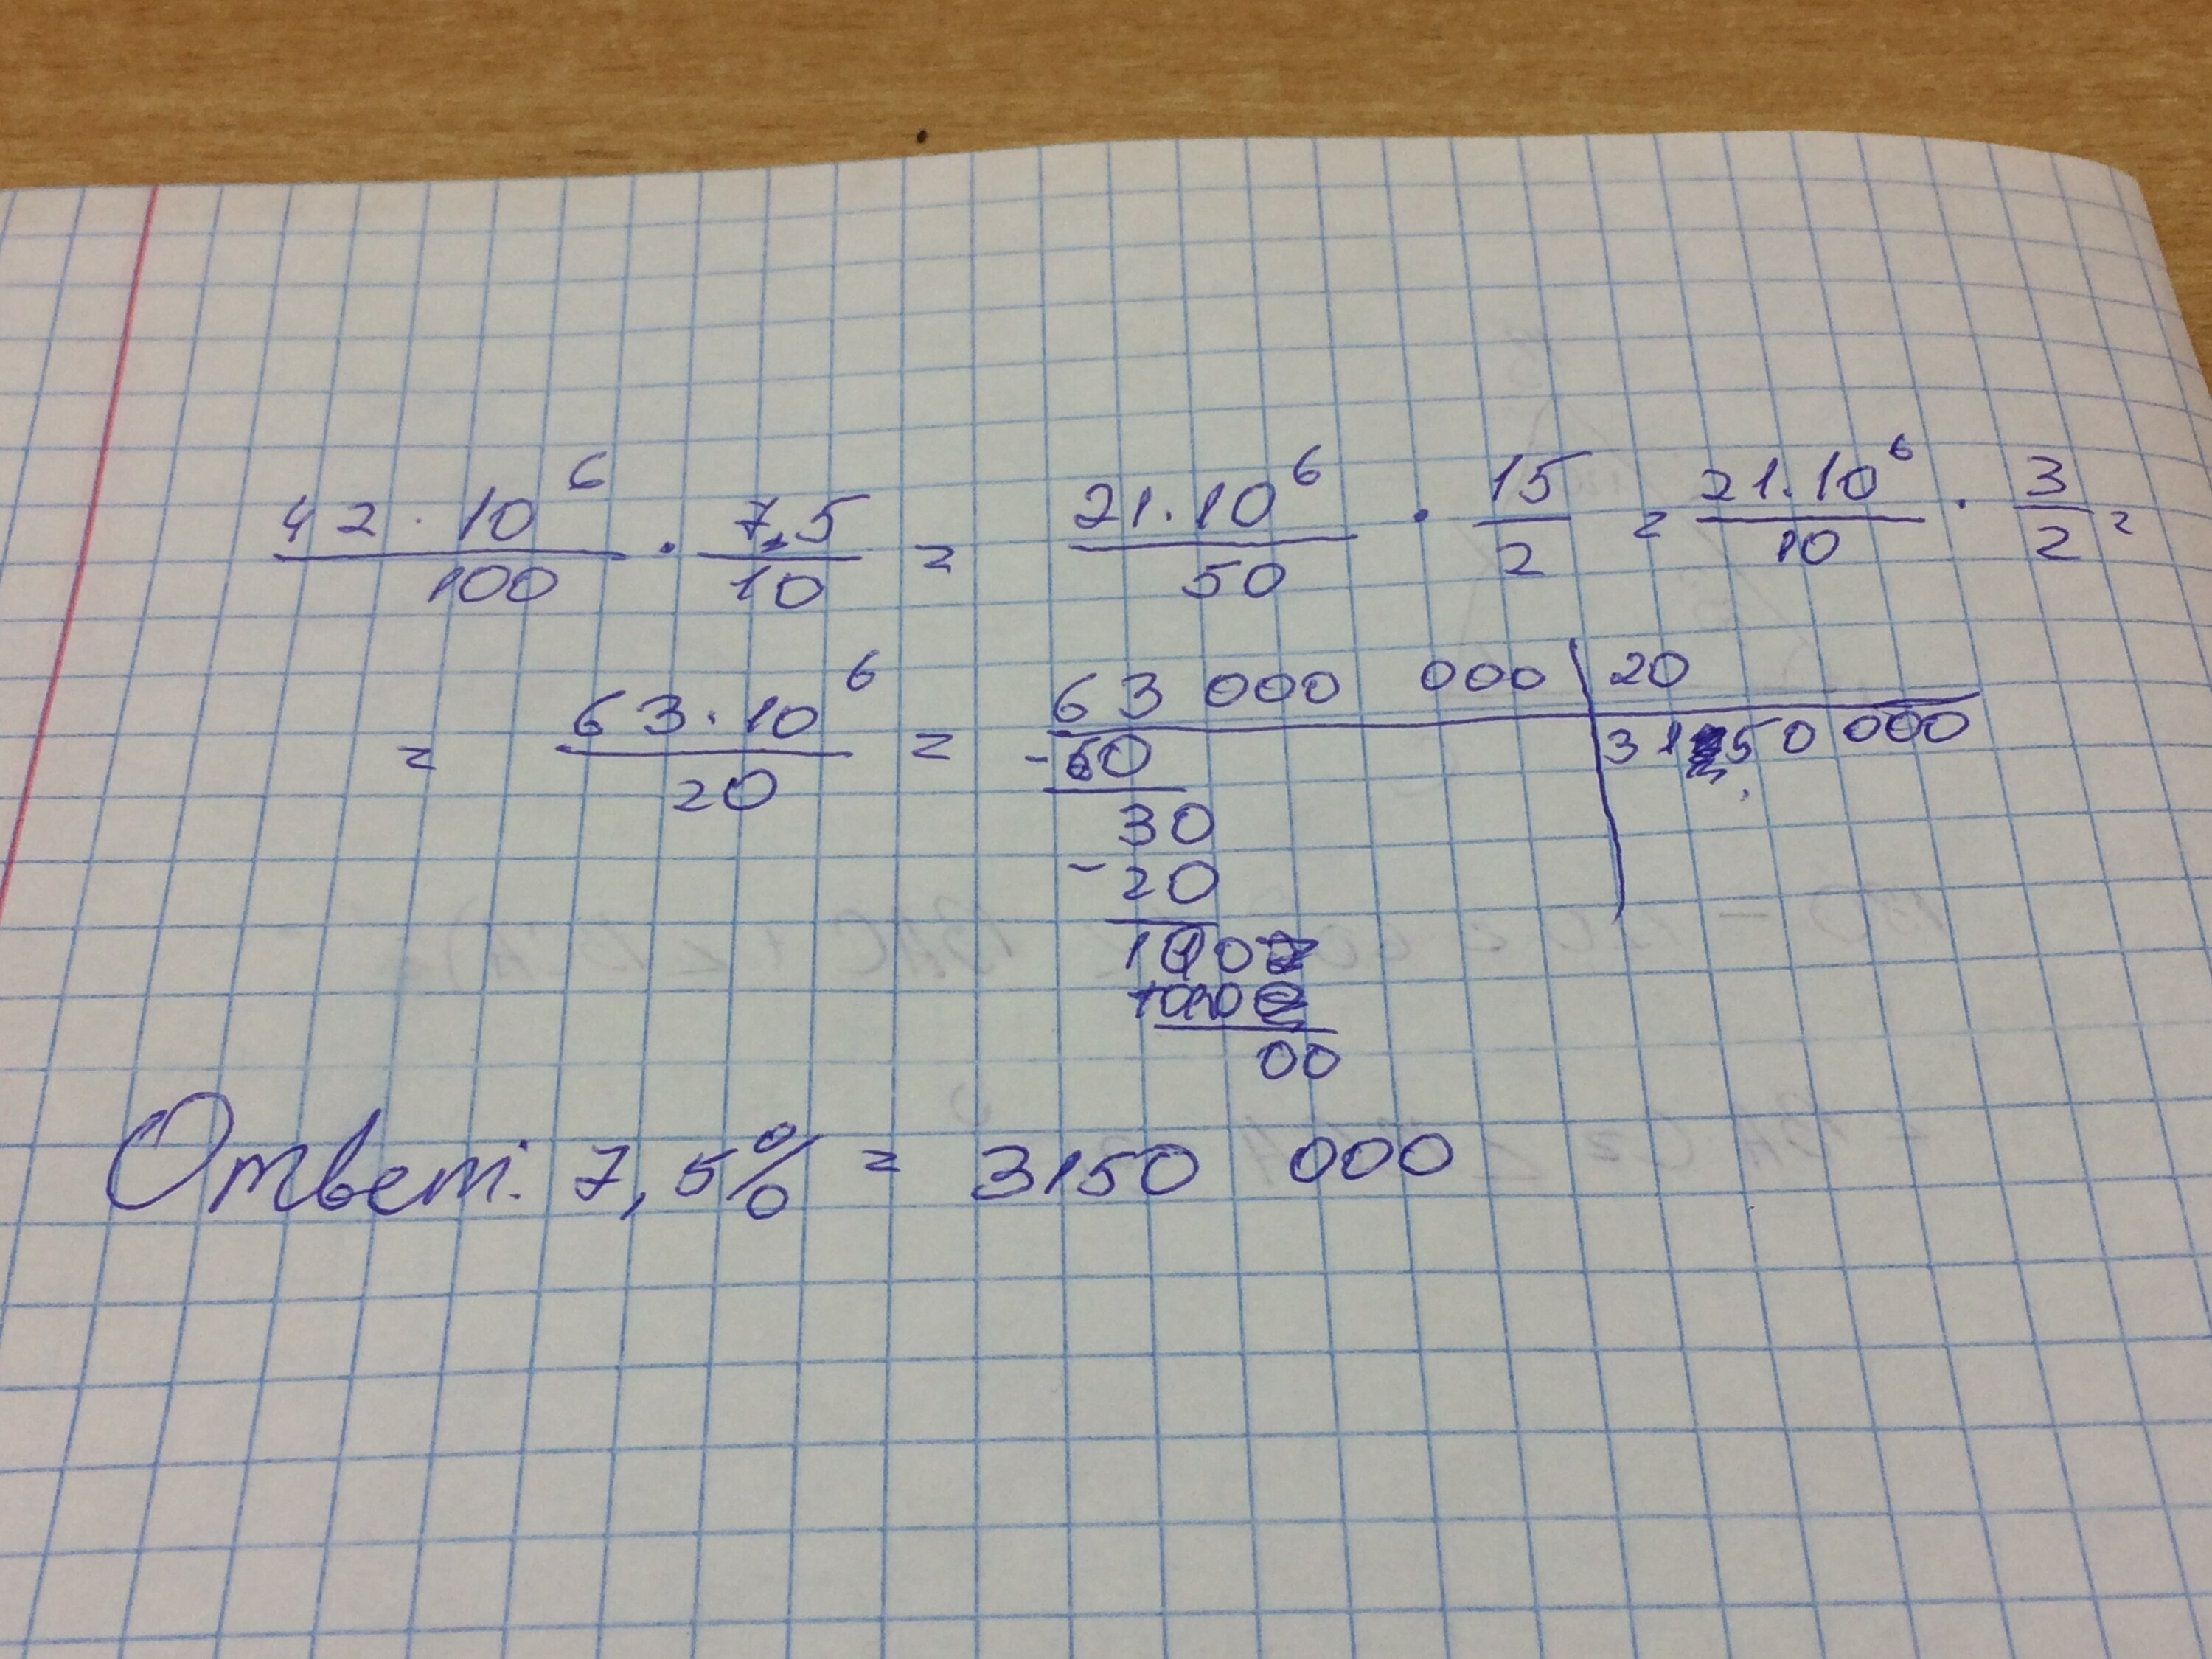 42 · 10⁶/100 · 7,5/10 = 21 · 10⁶/50 · 15/2 = 21 · 10⁶/10 · 3/2 =
= 63 · 10⁶/20 = 63 000 000 | 20
-60 3150 000
30
-20
100
100
00
Ответ: 7,5% = 3150 000